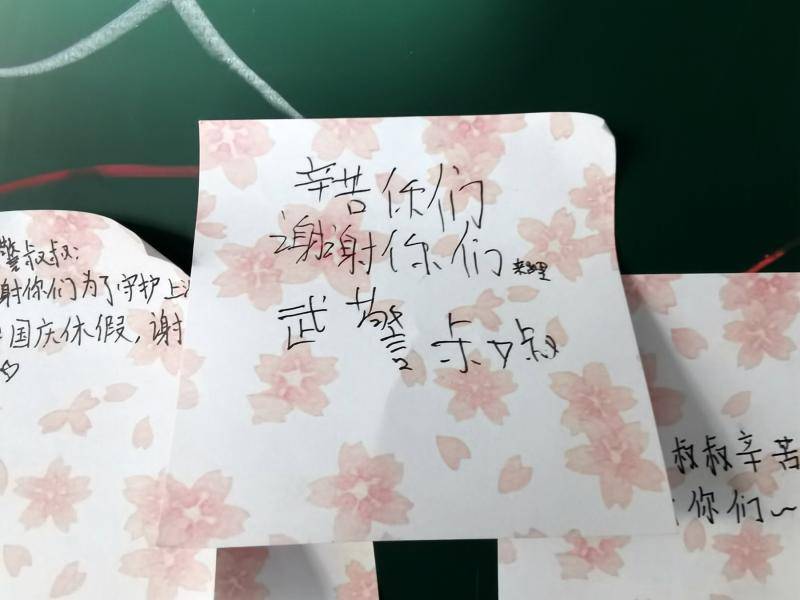 辛苦你们
谢谢你们
武警叔叔
警叔叔:
射你们为了守护上
国庆休假,谢
叔叔辛苦
你们~